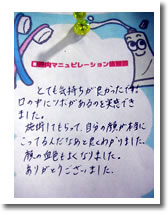 内マニュピレーション体験談
とても気持ちが良かったです。
口の中にツボがあるのを実感でき
ました。
施術してもらって、自分の顔が本当に
こってるんだなあと良くわかりました。
顔の血色もよくなりました。
ありがとうございました。